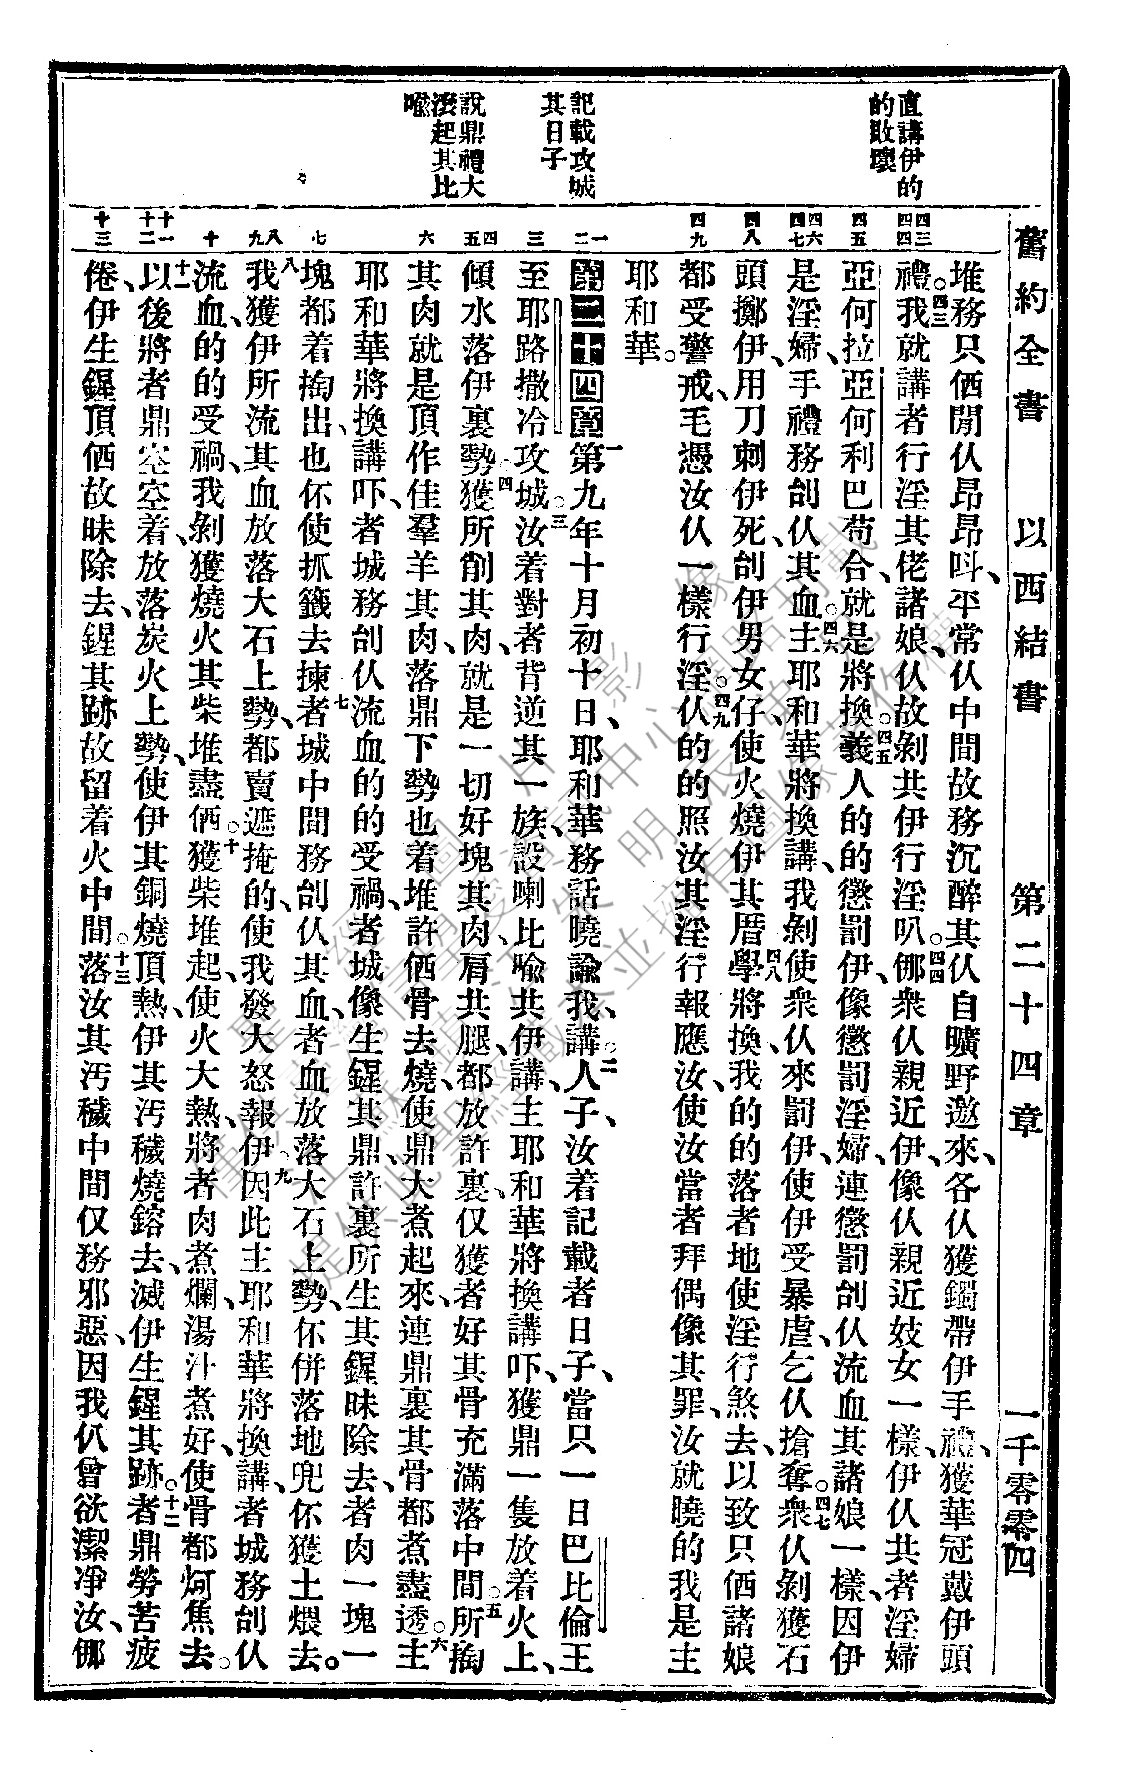 舊約全書 以西結書 第二十四章 一千零零四
直講伊的
的敗壞
記載攻城
其日子
說鼎禮大
滾起其比
喻
四三
四四
四五
四六
四七
四八
四九
一
二
三
四
五
六
七
八
九
十
十一
十二
十三
堆務只價閙仈昂昂呌、平常仈中間故務沉醉其仈自曠野邀來、各仈獲鐲帶伊手禮、獲華冠戴伊頭
禮。四三我就講者行淫其佬諸娘、仈故剝共伊行淫叭。四四㑚衆仈親近伊、像仈親近妓女一樣、伊仈共者淫婦
亞何拉亞何利巴茍合、就是將換。四五義人的的懲罰伊、像懲罰淫婦、連懲罰刣仈流血其諸娘一樣、因伊
是淫婦、手禮務刣仈其血。四六主耶和華將換講、我剝使衆仈來罰伊、使伊受暴虐、乞仈搶奪。四七衆仈剝獲石
頭擲伊、用刀刺伊死、刣伊男女仔、使火燒伊其厝。四八學將換、我的的落者地使淫行煞去、以致只價諸娘
都受警戒、毛憑汝仈一樣行淫。四九仈的的照汝其淫行報應汝、使汝當者拜偶像其罪、汝就曉的我是主
耶和華。
第二十四章一第九年十月初十日、耶和華務話曉諭我講、二人子、汝着記載者日子、當只一日巴比倫王
至耶路撒冷攻城。三汝着對者背逆其一族、設喇比喻共伊講、主耶和華將換講吓、獲鼎一隻放着火上、
傾水落伊裏勢、四獲所削其肉、就是一切好塊其肉、肩共腿、都放許裏、仅獲者好其骨充滿落中間。五所搊
其肉就是頂作佳羣羊其肉、落鼎下勢也着堆許價骨去燒、使鼎大煮起來、連鼎裏其骨都煮盡透。六主
耶和華將換講吓、者城務刣仈流血的的受禍、者城像生鏗其鼎、許裏所生其鏗昧除去、者肉一塊一
塊都着搊出、也伓使抓籤去揀。七者城中間務刣仈其血、者血放落大石上勢、伓併落地兜伓獲土煨去。
八我獲伊所流其血放落大石上勢、都賣遮掩的、使我發大怒報伊。九因此主耶和華將換講、者城務刣仈
流血、的的受禍、我剝獲燒火其柴堆盡價。十獲柴堆起、使火大熱、將者肉煮爛、湯汁煮好、使骨都炣焦去。
十一以後將者鼎空空着放落炭火上勢、使伊其銅燒頂熱、伊其汚穢燒鎔去、滅伊生鏗其跡。十二者鼎勞苦疲
倦、伊生鏗頂價故昧除去、鏗其跡故留着火中間。十三落汝其汚穢中間仅務邪惡、因我仈曾欲潔凈汝、㑚